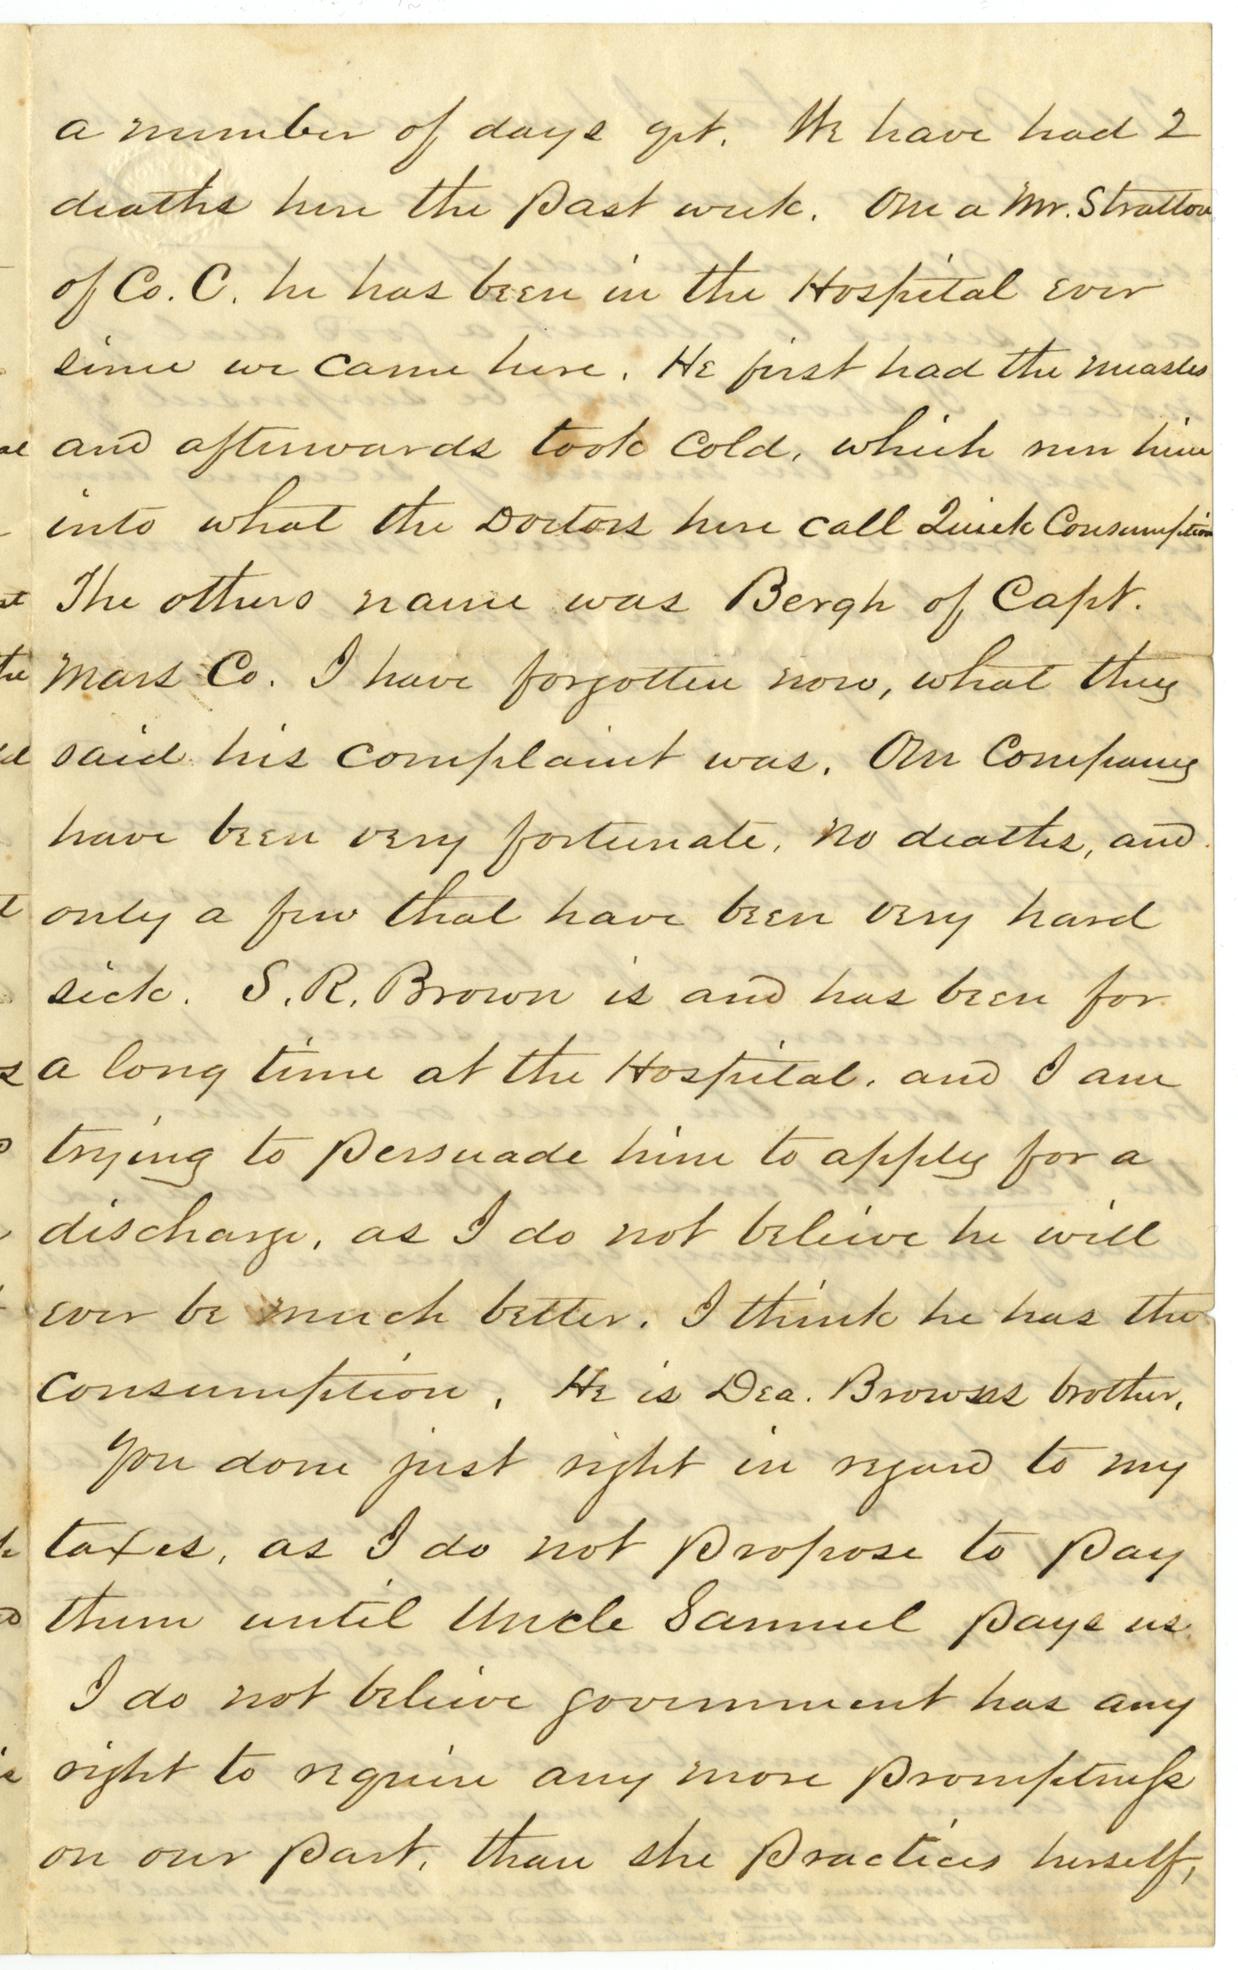 a number of days yet. We have had 2
deaths here the past week. One a Mr. Stratton
of Co. C. he has been in the Hospital ever
since we came here. He first had the measles
and afterwards took cold, which run him
into what the Doctors here call Quick Consumption
The others name was Bergh of Capt.
Mars Co. I have forgotten now, what they
said his complaint was. Our Company
have been very fortunate, no deaths, and
only a few that have been very hard
sick. S. R. Brown is and has been for
a long time at the Hospital. and I am
trying to persuade him to apply for a
discharge, as I do not believe he will
ever be much better. I think he has the
consumption. He is Dea. Browns brother.
You done just right in regard to my
taxes, as I do not propose to pay
them until Uncle Samuel pays us
I do not believe government has any
right to require any more promptness
on our part, than she practices herself,